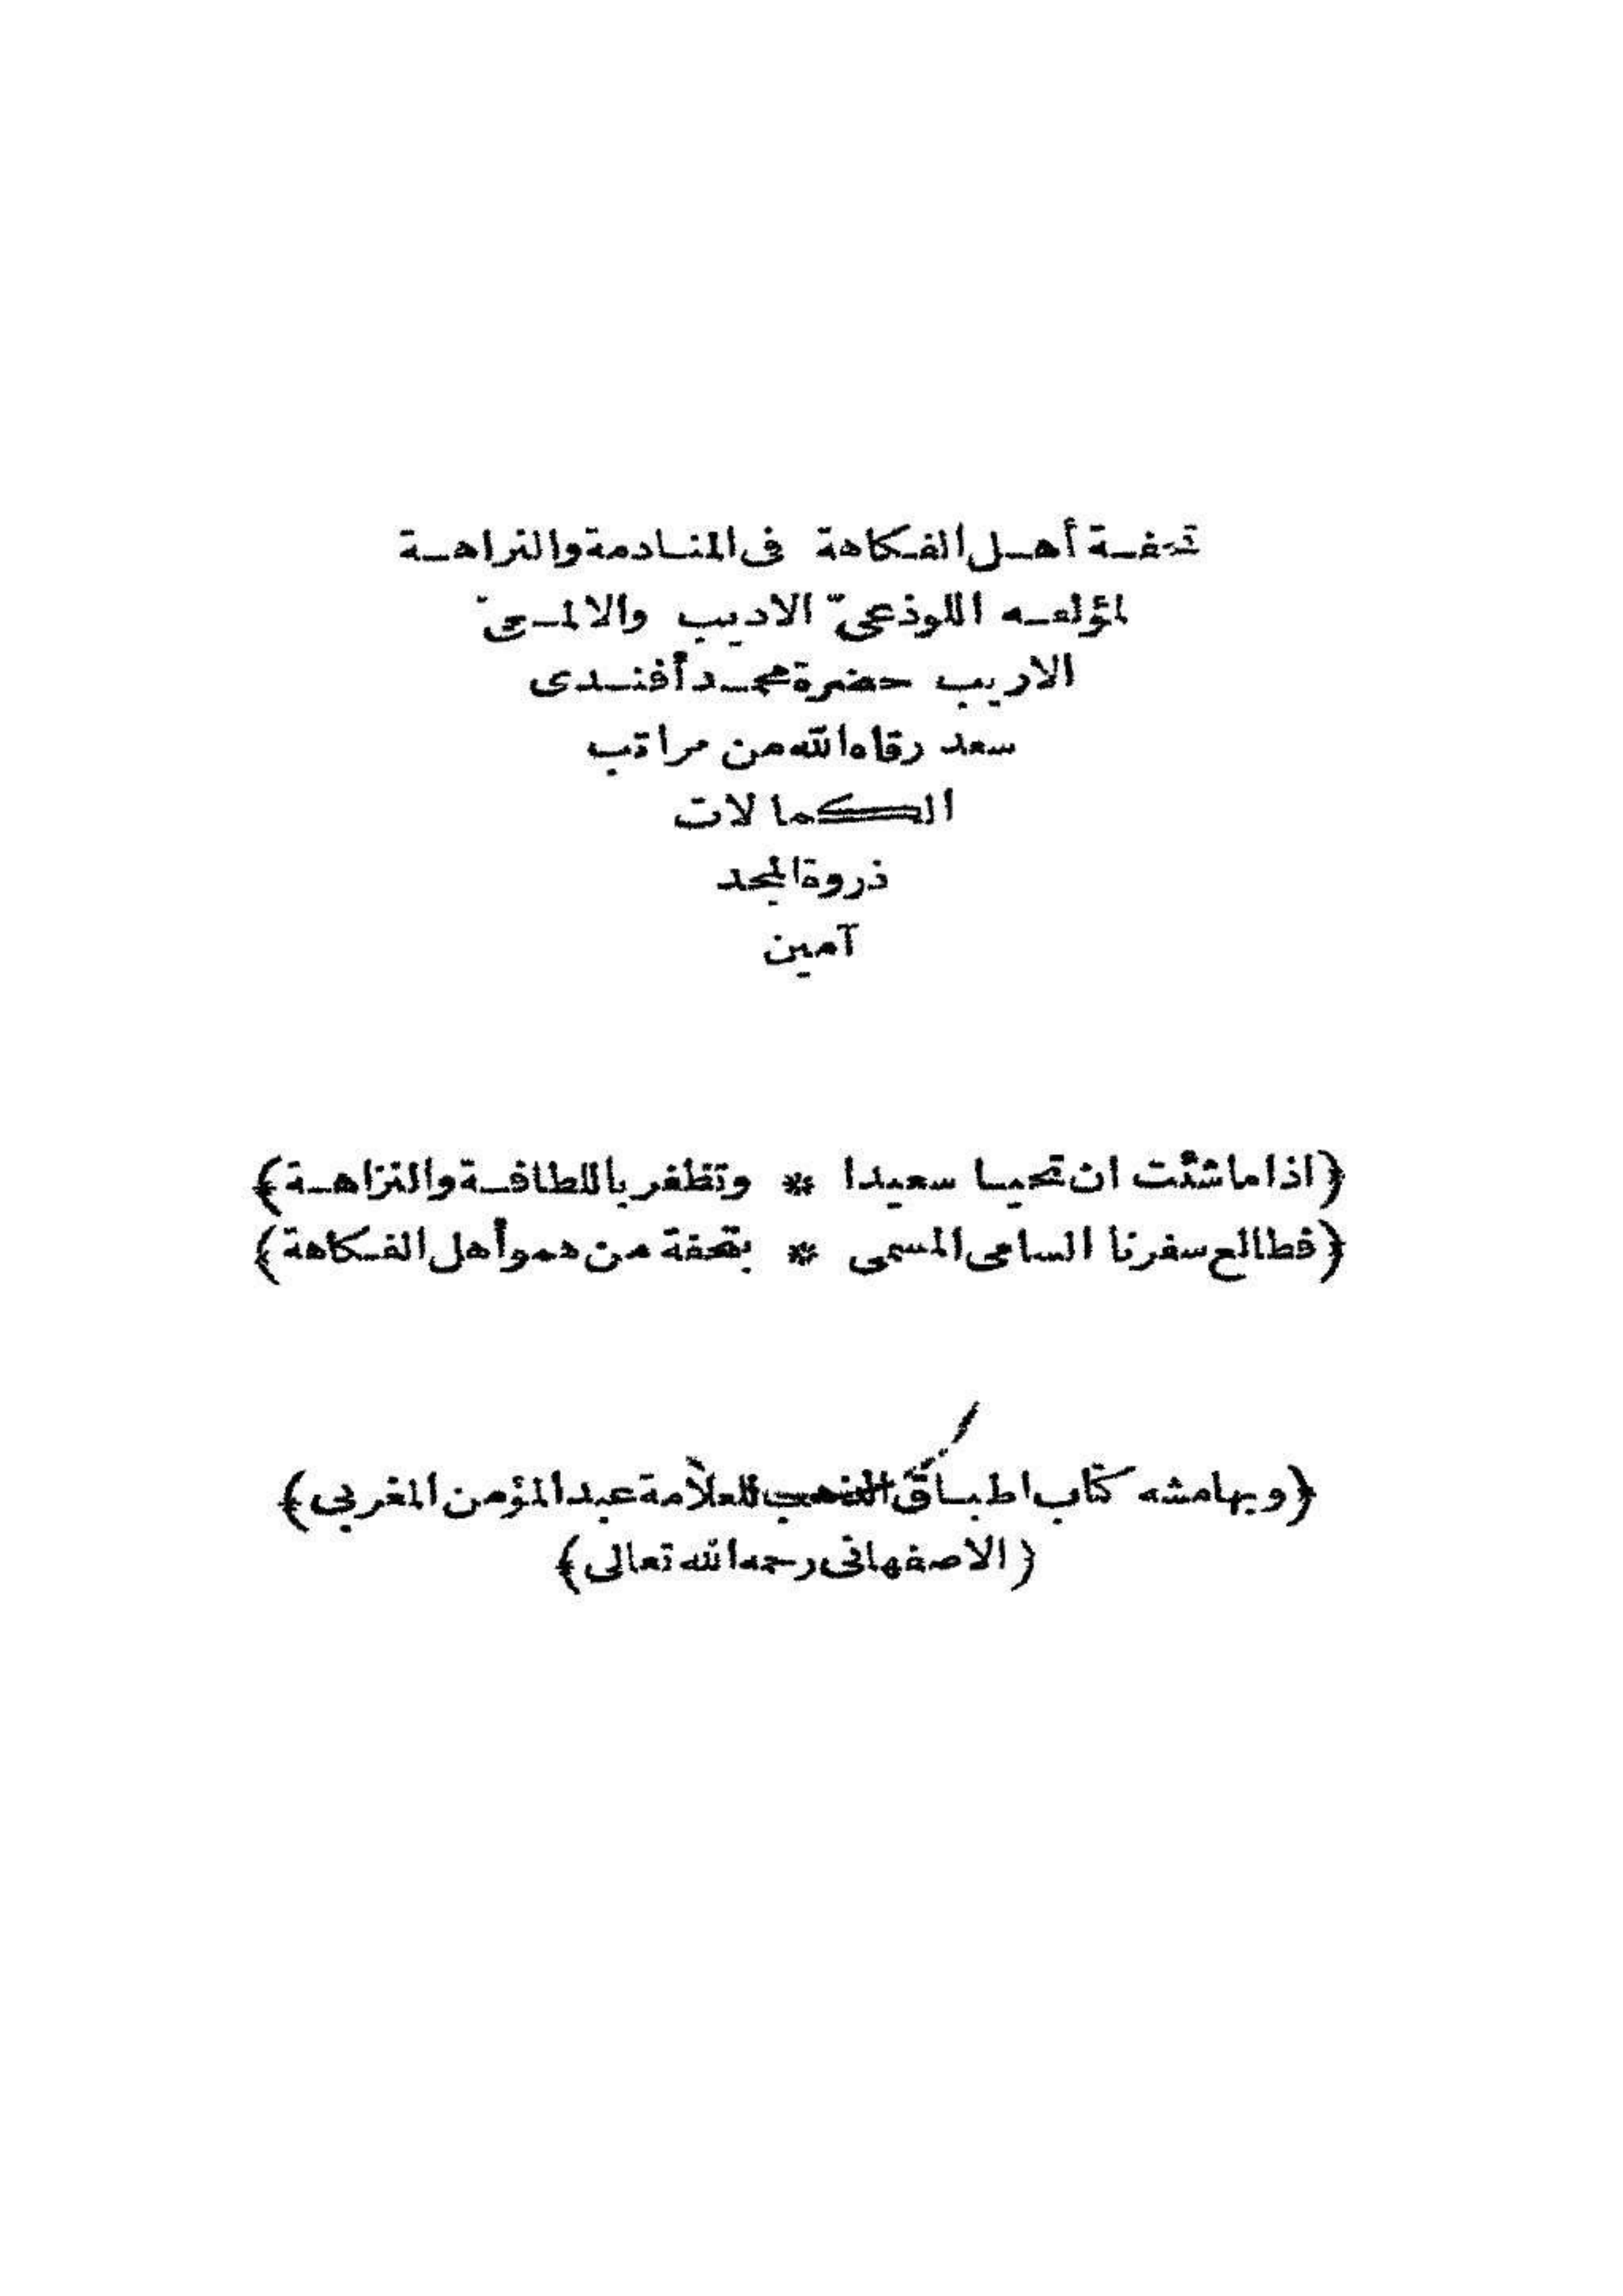 تحفة أهل الفكاهة فى المنادمة والنزاهة
لمؤلفه اللوذعىّ الاديب والالمعىّ
الاريب حضرة محمد أفندى
سعد رقاه الله من مراتب
الكمالات
ذروة المجد
آمين
﴿اذا ما شئت ان تحيا سعيدا * وتظفر باللطافة والنزاهة﴾
﴿فطالع سفرنا السامى المسمى * بتحفة من همو أهل الفكاهة﴾
﴿وبهامشه كتاب اطباق الذهب للعلامة عبد المؤمن المغربى﴾
﴿الاصفهانى رحمه الله تعالى﴾